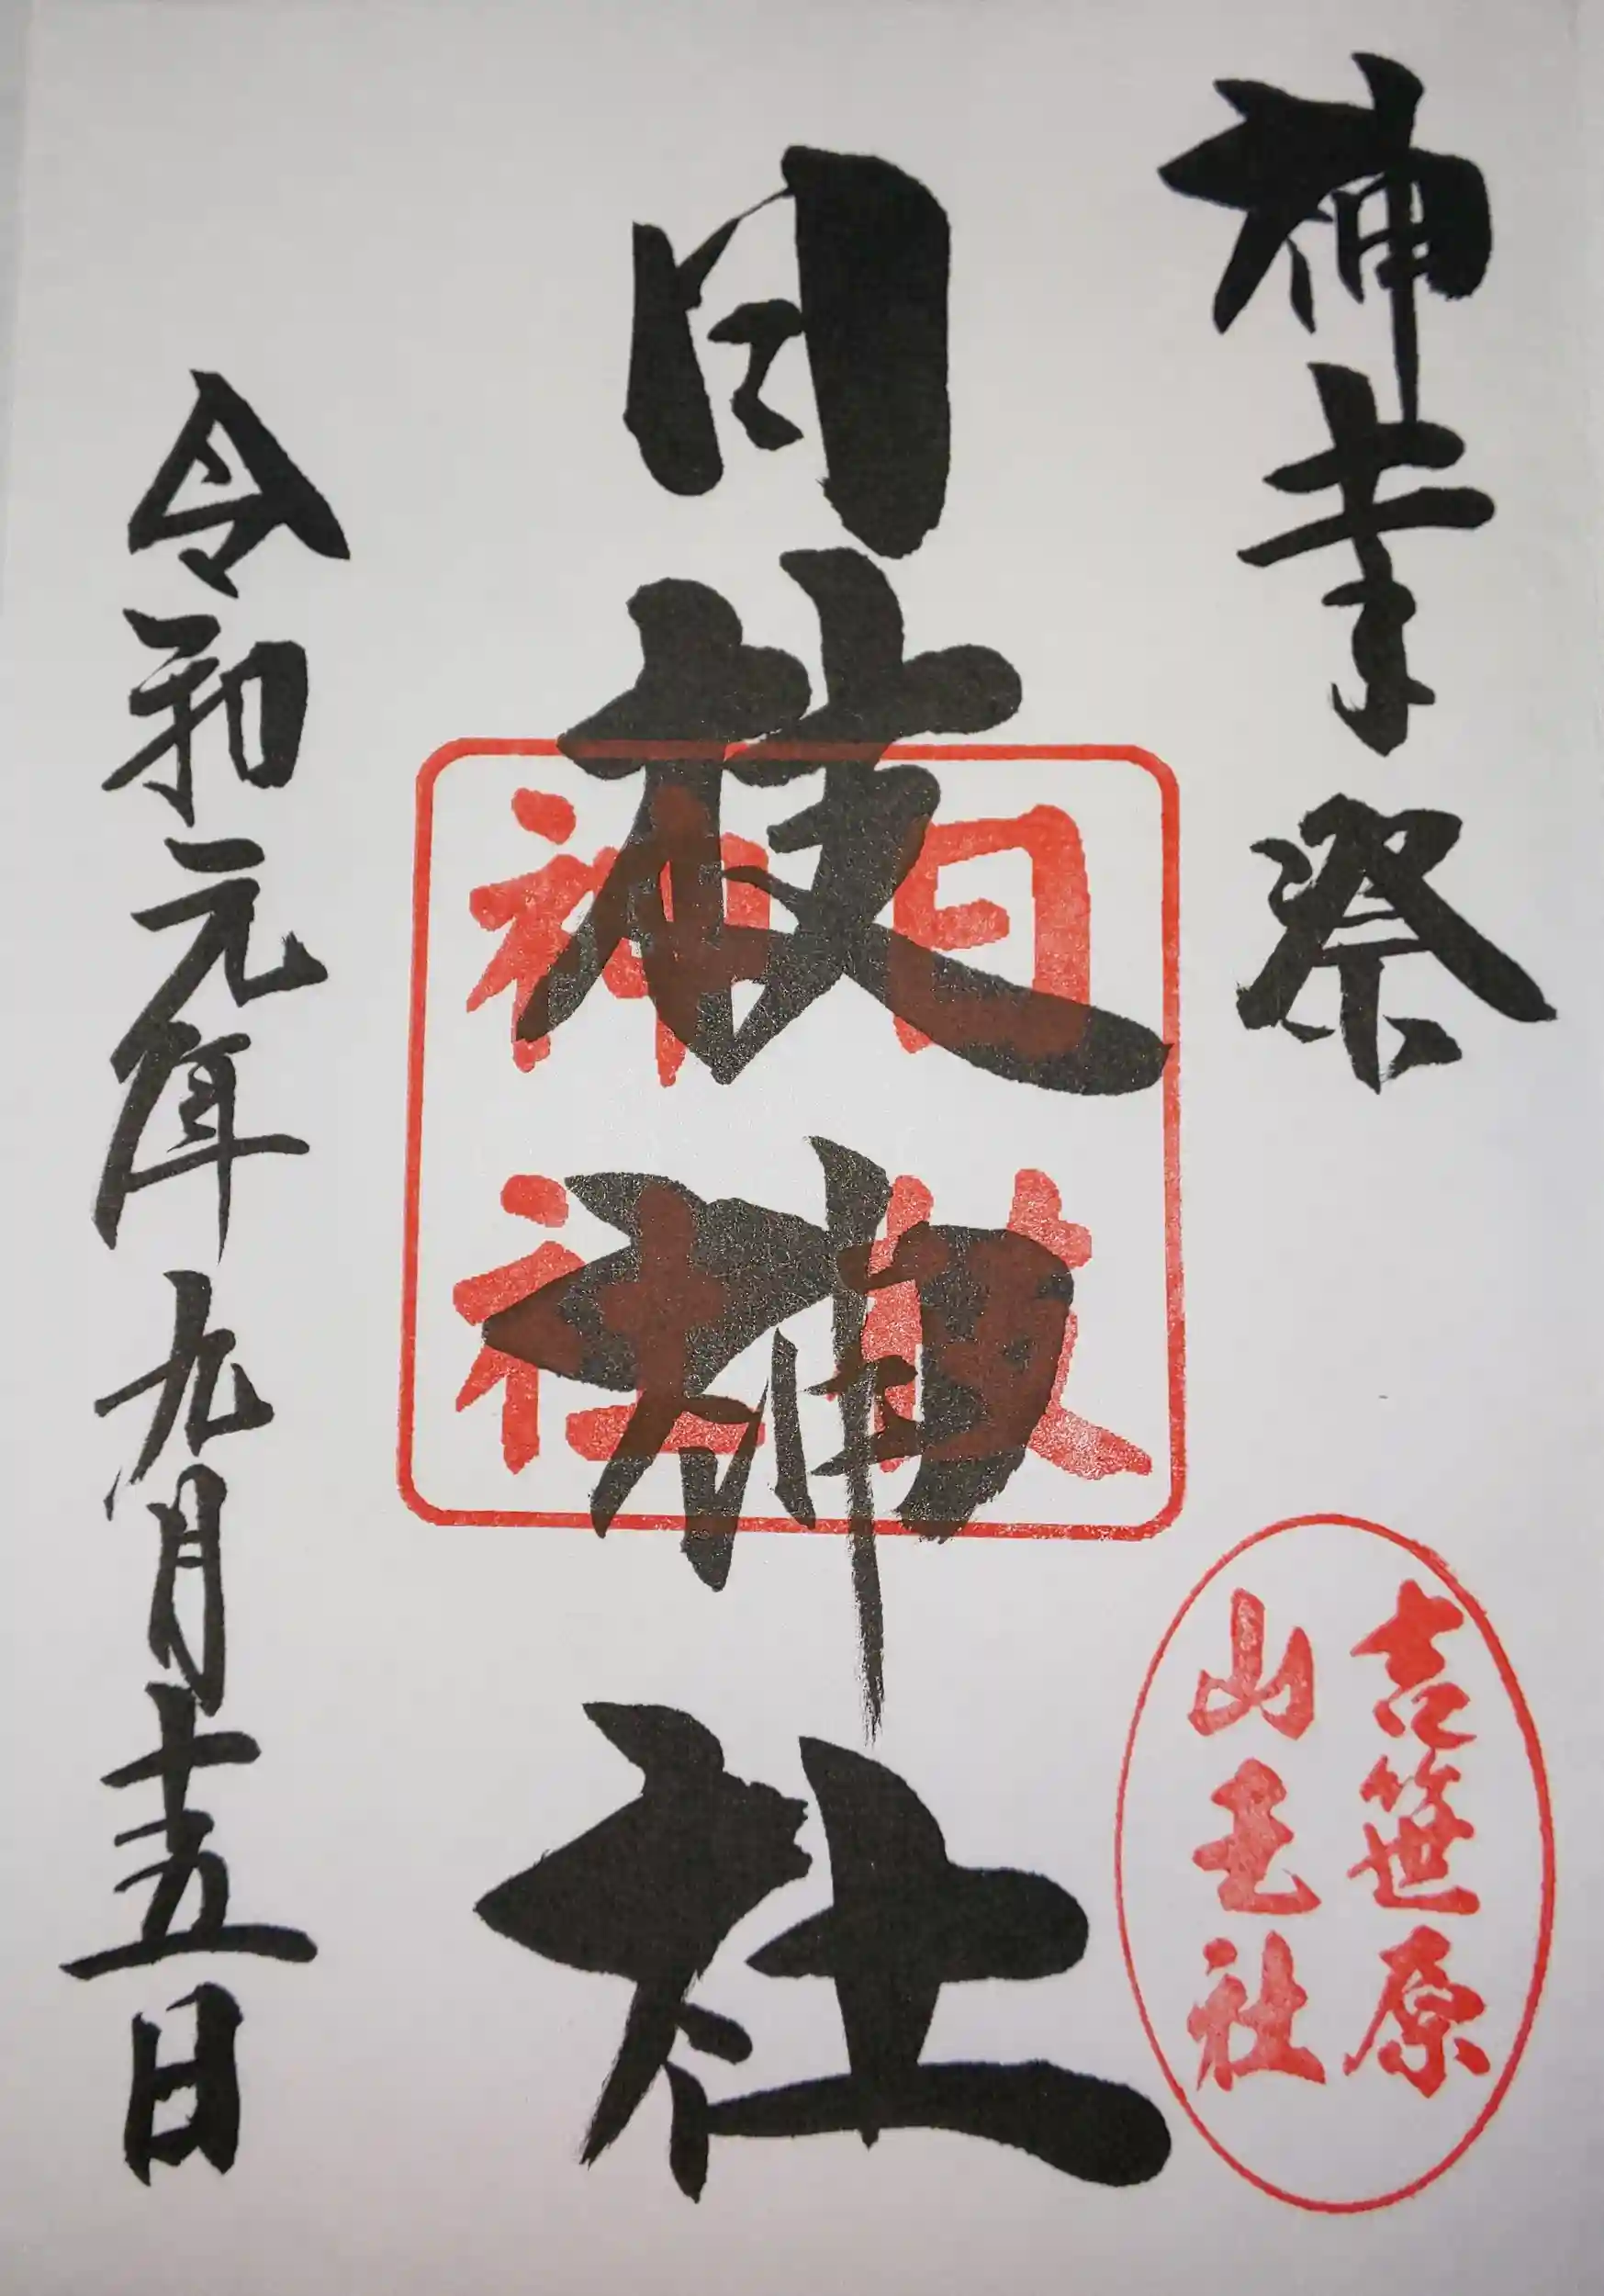 神幸祭
吉笹原
山王社
日枝神社
日枝
神社
令和元年九月十五日